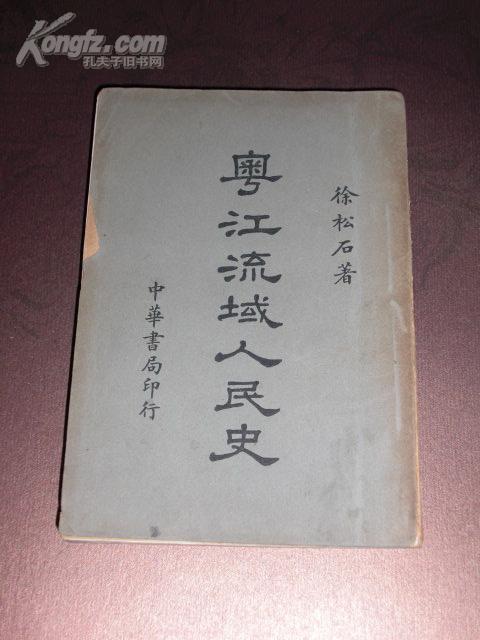 Kongfz.com
孔夫子旧书网
徐松石著
粵江流域人民史
中華書局印行